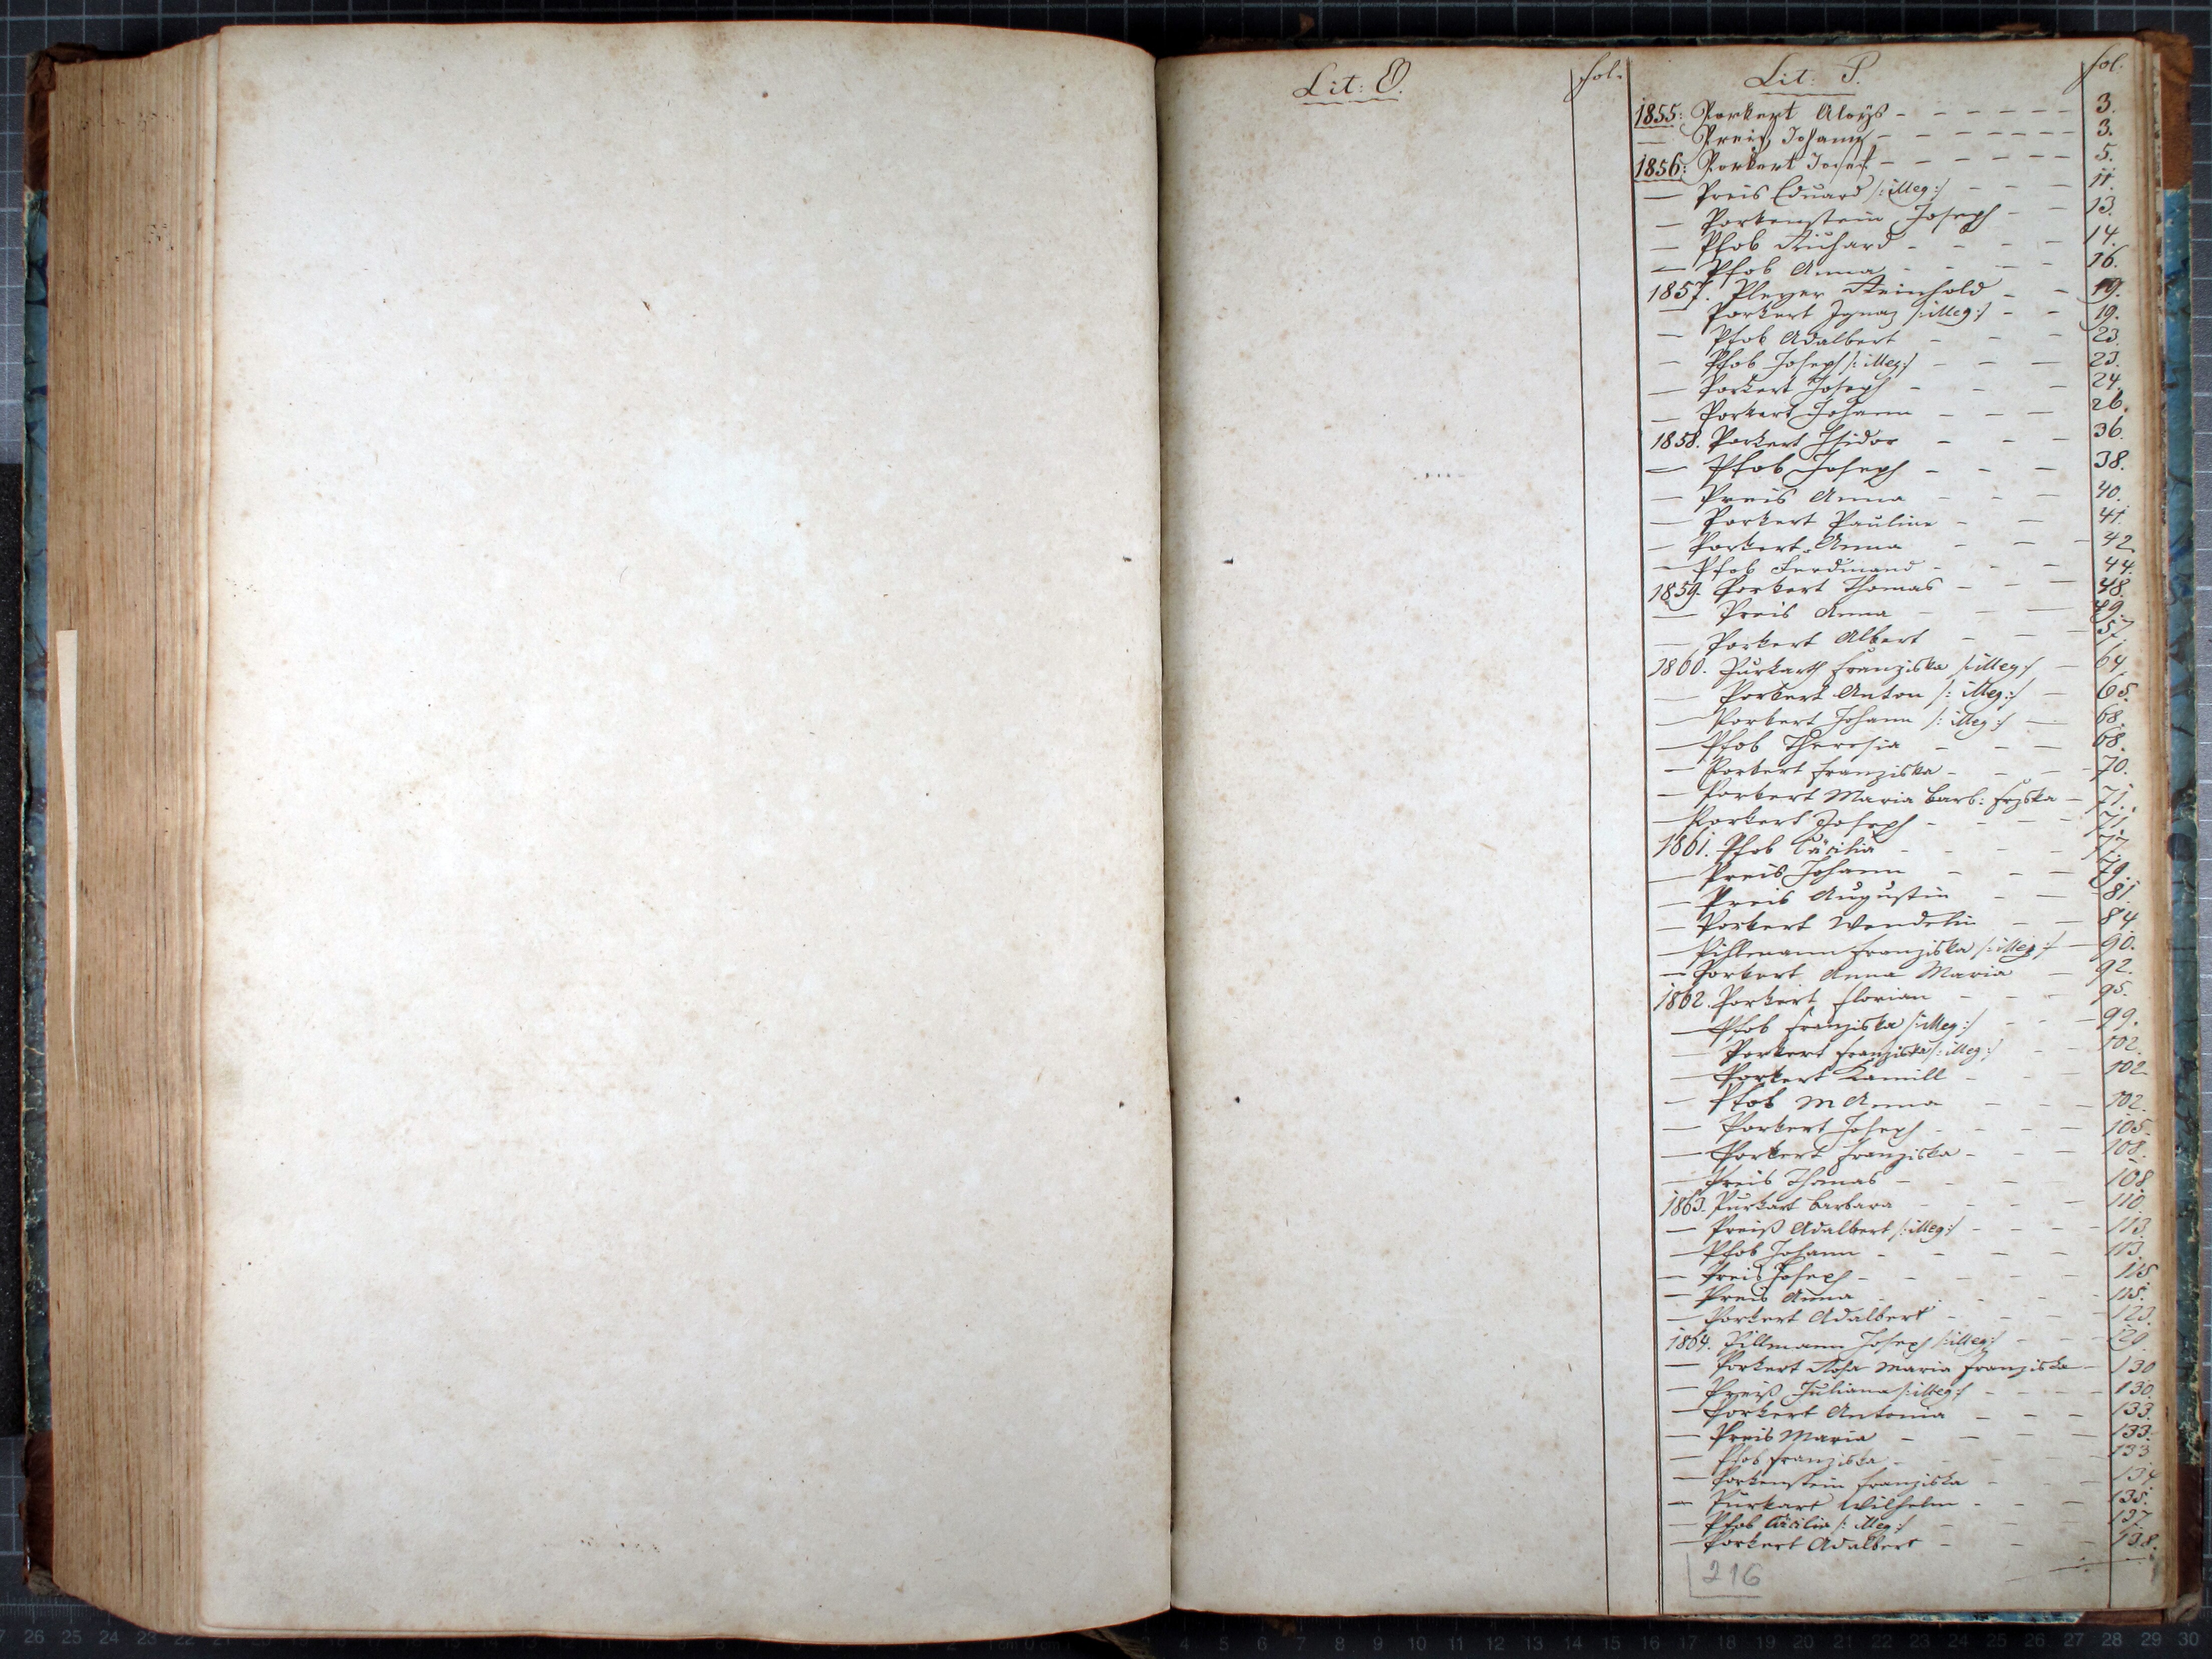 Lit: O.
fol.
Lit: P.
fol.
1855: Porkert Aloys - - - - - - 3.
— Preis, Johann - - - - - - - 3.
1856: Porkert Josef - - - - - - 5.
— Preis Eduard /: illeg :/ - - - 11.
— Porkenstein Joseph - - 13.
— Pfob Richard - - - - 14.
— Pfob Anna - - - - 16.
1857. Pleyer Reinhold - - 19.
— Porkert Ignaz /: illeg :/ - - 19.
— Pfob Adalbert - - - 23.
— Pfob Joseph /: illeg :/ - - - 23.
— Porkert Joseph - - - 24.
— Porkert Johann - - - 26.
1858. Porkert Isidor - - - 36.
— Pfob Joseph - - - 38.
— Preis Anna - - - 40.
— Porkert Pauline - - 41.
— Porkert Anna - - - 42
— Pfob Ferdinand - - - 44.
1859. Porkert Thomas - - - 48.
— Preis Anna - - - 49.
— Porkert Albert - - - 57.
1860. Purkarth Franziska /: illeg :/ - 64.
— Porkert Anton /: illeg :/ - 65.
— Porkert Johann /: illeg :/ — 68.
— Pfob Theresia - - - 68.
— Porkert Franziska - - - - 70.
— Porkert Maria Barb: Frzska - 71.
— Porkert Joseph - - - - 71.
1861. Pfob Cäcilia - - - - 77.
— Preis Johann - - - 79.
— Preis Augustin - - - 81.
— Porkert Wendelin - - 84
— Pihlmann Franziska /: illeg :/ - 90.
— Porkert Anna Maria - 92.
1862. Porkert Florian - - - 95.
— Pfob Franziska /: illeg :/ - - - 99.
— Porkert Franziska /: illeg :/ - - 102.
— Porkert Kamill - - - 102
— Pfob M Anna - - - 102.
— Porkert Joseph - - - - 105.
— Porkert Franziska - - - 108.
— Preis Thomas - - - 108
1863. Purkart Barbara - - - - 110.
— Preiß Adalbert /: illeg :/ - - - - 113.
— Pfob Johann - - - - 113.
— Preis Joseph - - - - - 115
— Preis Anna - - - - 115.
— Porkert Adalbert - - - - 123.
1864. Pillmann Joseph /: illeg :/ - - - 129.
— Porkert Rosa Maria Franziska - 130
— Preiß Juliana /: illeg :/ - - - - 130.
— Porkert Antonia - - - 133.
— Preis Maria - - - - 133.
— Pfob Franziska - - - 133
— Porkenstein Franziska - - - 134.
— Purkart Wilhelm - - - 135.
— Pfob Cäcilia /: illeg :/ - - - 137.
— Porkert Adalbert - - - 138.
216